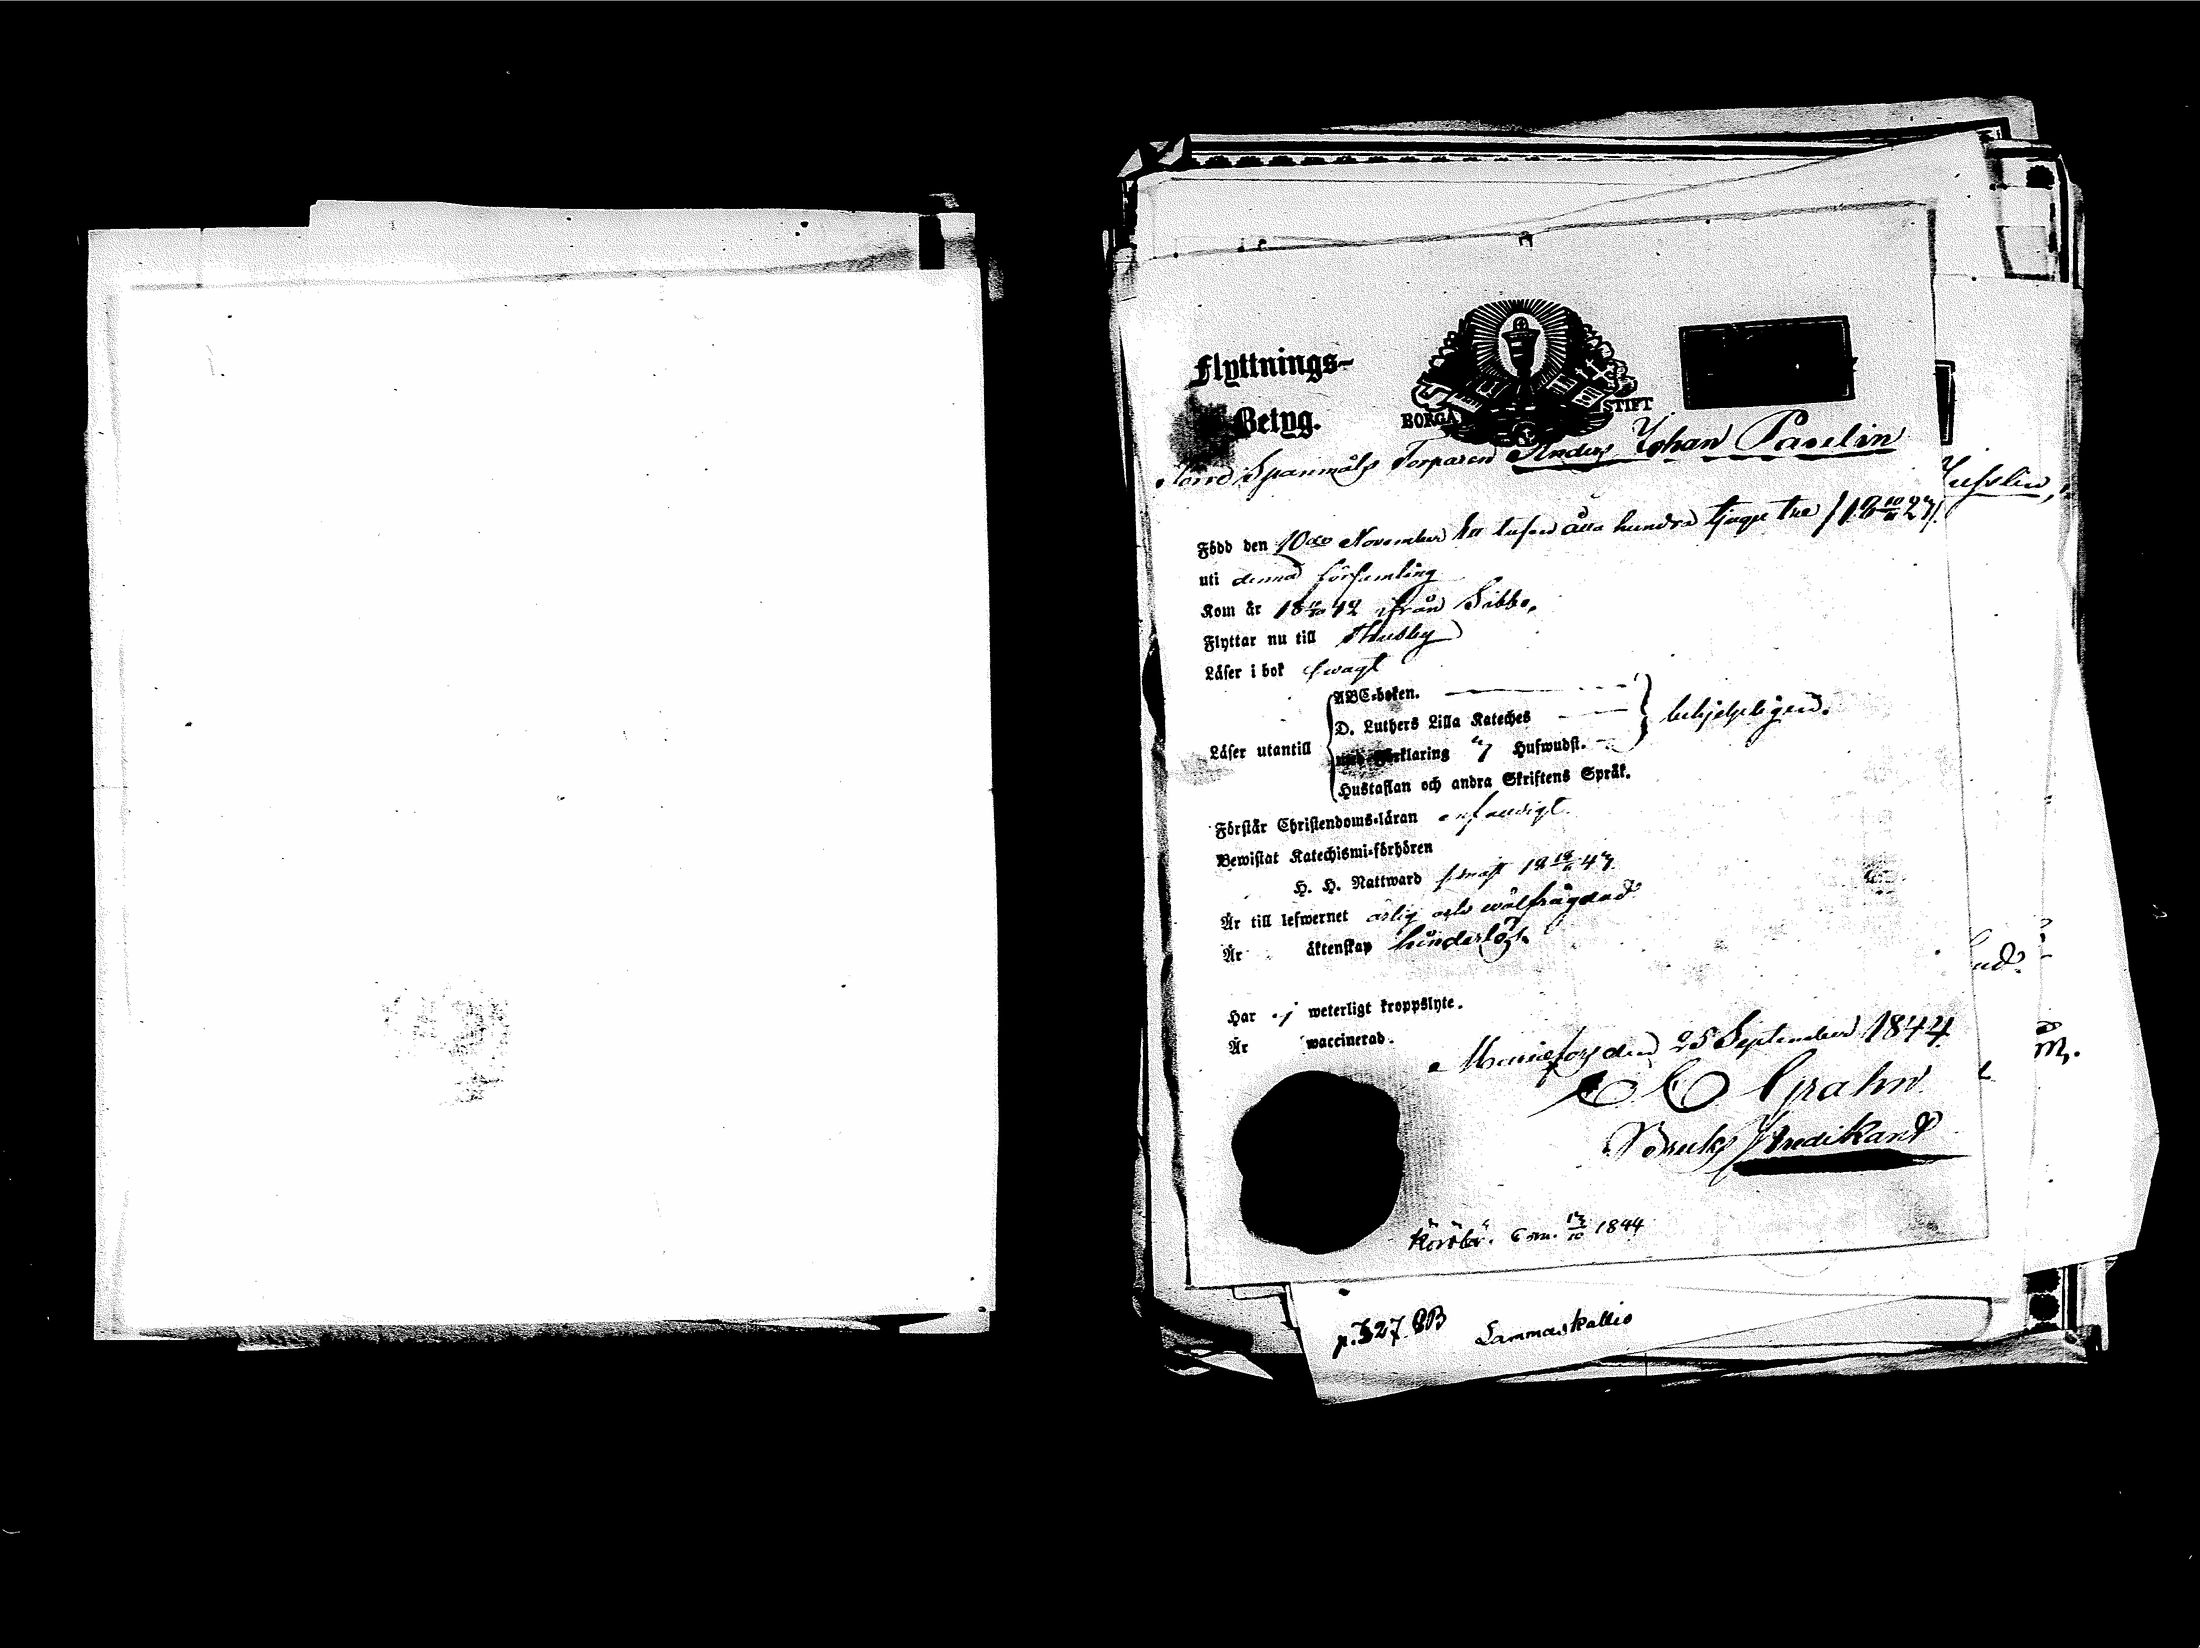 Flyttnings-
Betyg.
BORGÅ STIFT
Spanmåls Torparen Anders Johan Paselin
Född den 10de November Ett tusen åtta hundra tjugu tre /18 10/11 23/.
uti denna församling
Kom år 18 42 ifrån Sibbo.
Flyttar nu till Thusby
Läser i bok swagt
Läser utantill
ABC-boken.
D. Luthers Lilla Kateches
med Förklaring Hufwudst.
behjelpligen.
Hustaflan och andra Skriftens Språk.
Förstår Christendoms-läran enfaldigt
Bewistat Katechismi-förhören
H. H. Nattward sednast 18 43
Är till lefwernet ärlig och wälfrägdad
Är äktenskap hinderlös.
Har ej weterligt kroppslyte.
Är waccinerad.
Mariefors den 25 September 1844
C C Grahn
Bruks Predikant
1844
p. 327. BB Lammaskallio